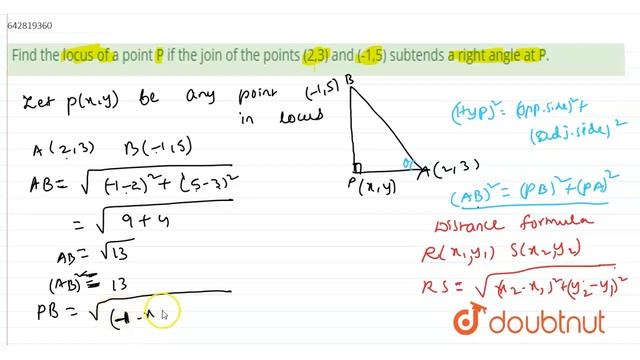 642819360
Find the locus of a point P if the join of the points (2,3) and (-1,5) subtends a right angle at P.
Let P(x,y) be any point
in locus
A(2,3) B(-1,5)
AB = √(-1-2)²+(5-3)²
= √9+4
AB = √13
(AB)² = 13
PB = √(-1-x
(-1,5) B
P (x,y)
A(2,3)
(Hyp)² = (opp.side)² +
(adj.side)²
(AB)² = (PB)² + (PA)²
Distance formula
R(x₁,y₁) S(x₂,y₂)
RS = √(x₂-x₁)²+(y₂-y₁)²
doubtnut